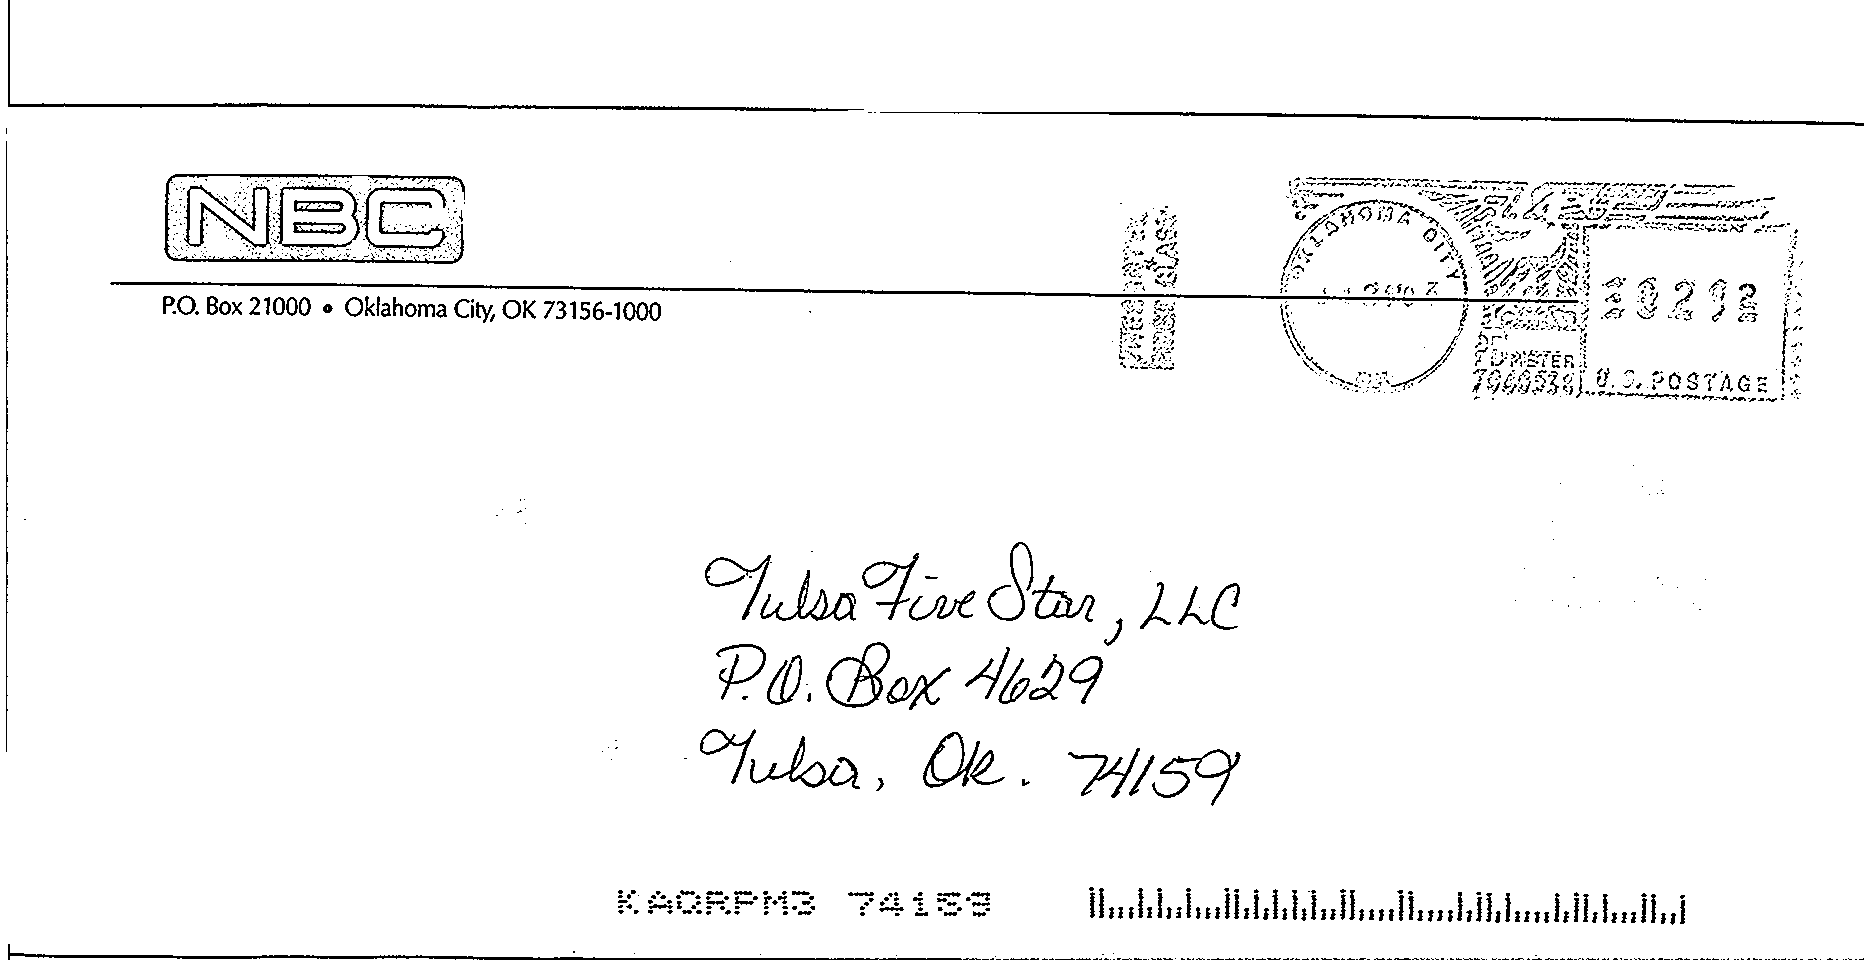 NBC
P.O. Box 21000 • Oklahoma City, OK 73156-1000
OKLAHOMA CITY
OK
METER
U.S. POSTAGE
Tulsa Five Star, LLC
P.O. Box 4629
Tulsa, Ok. 74159
KAQRPM3 74159